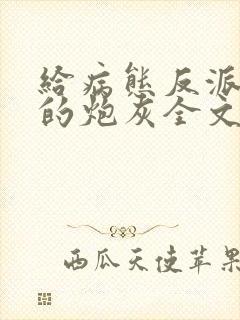 給病態反派
的炮灰全文
西瓜天使苹果